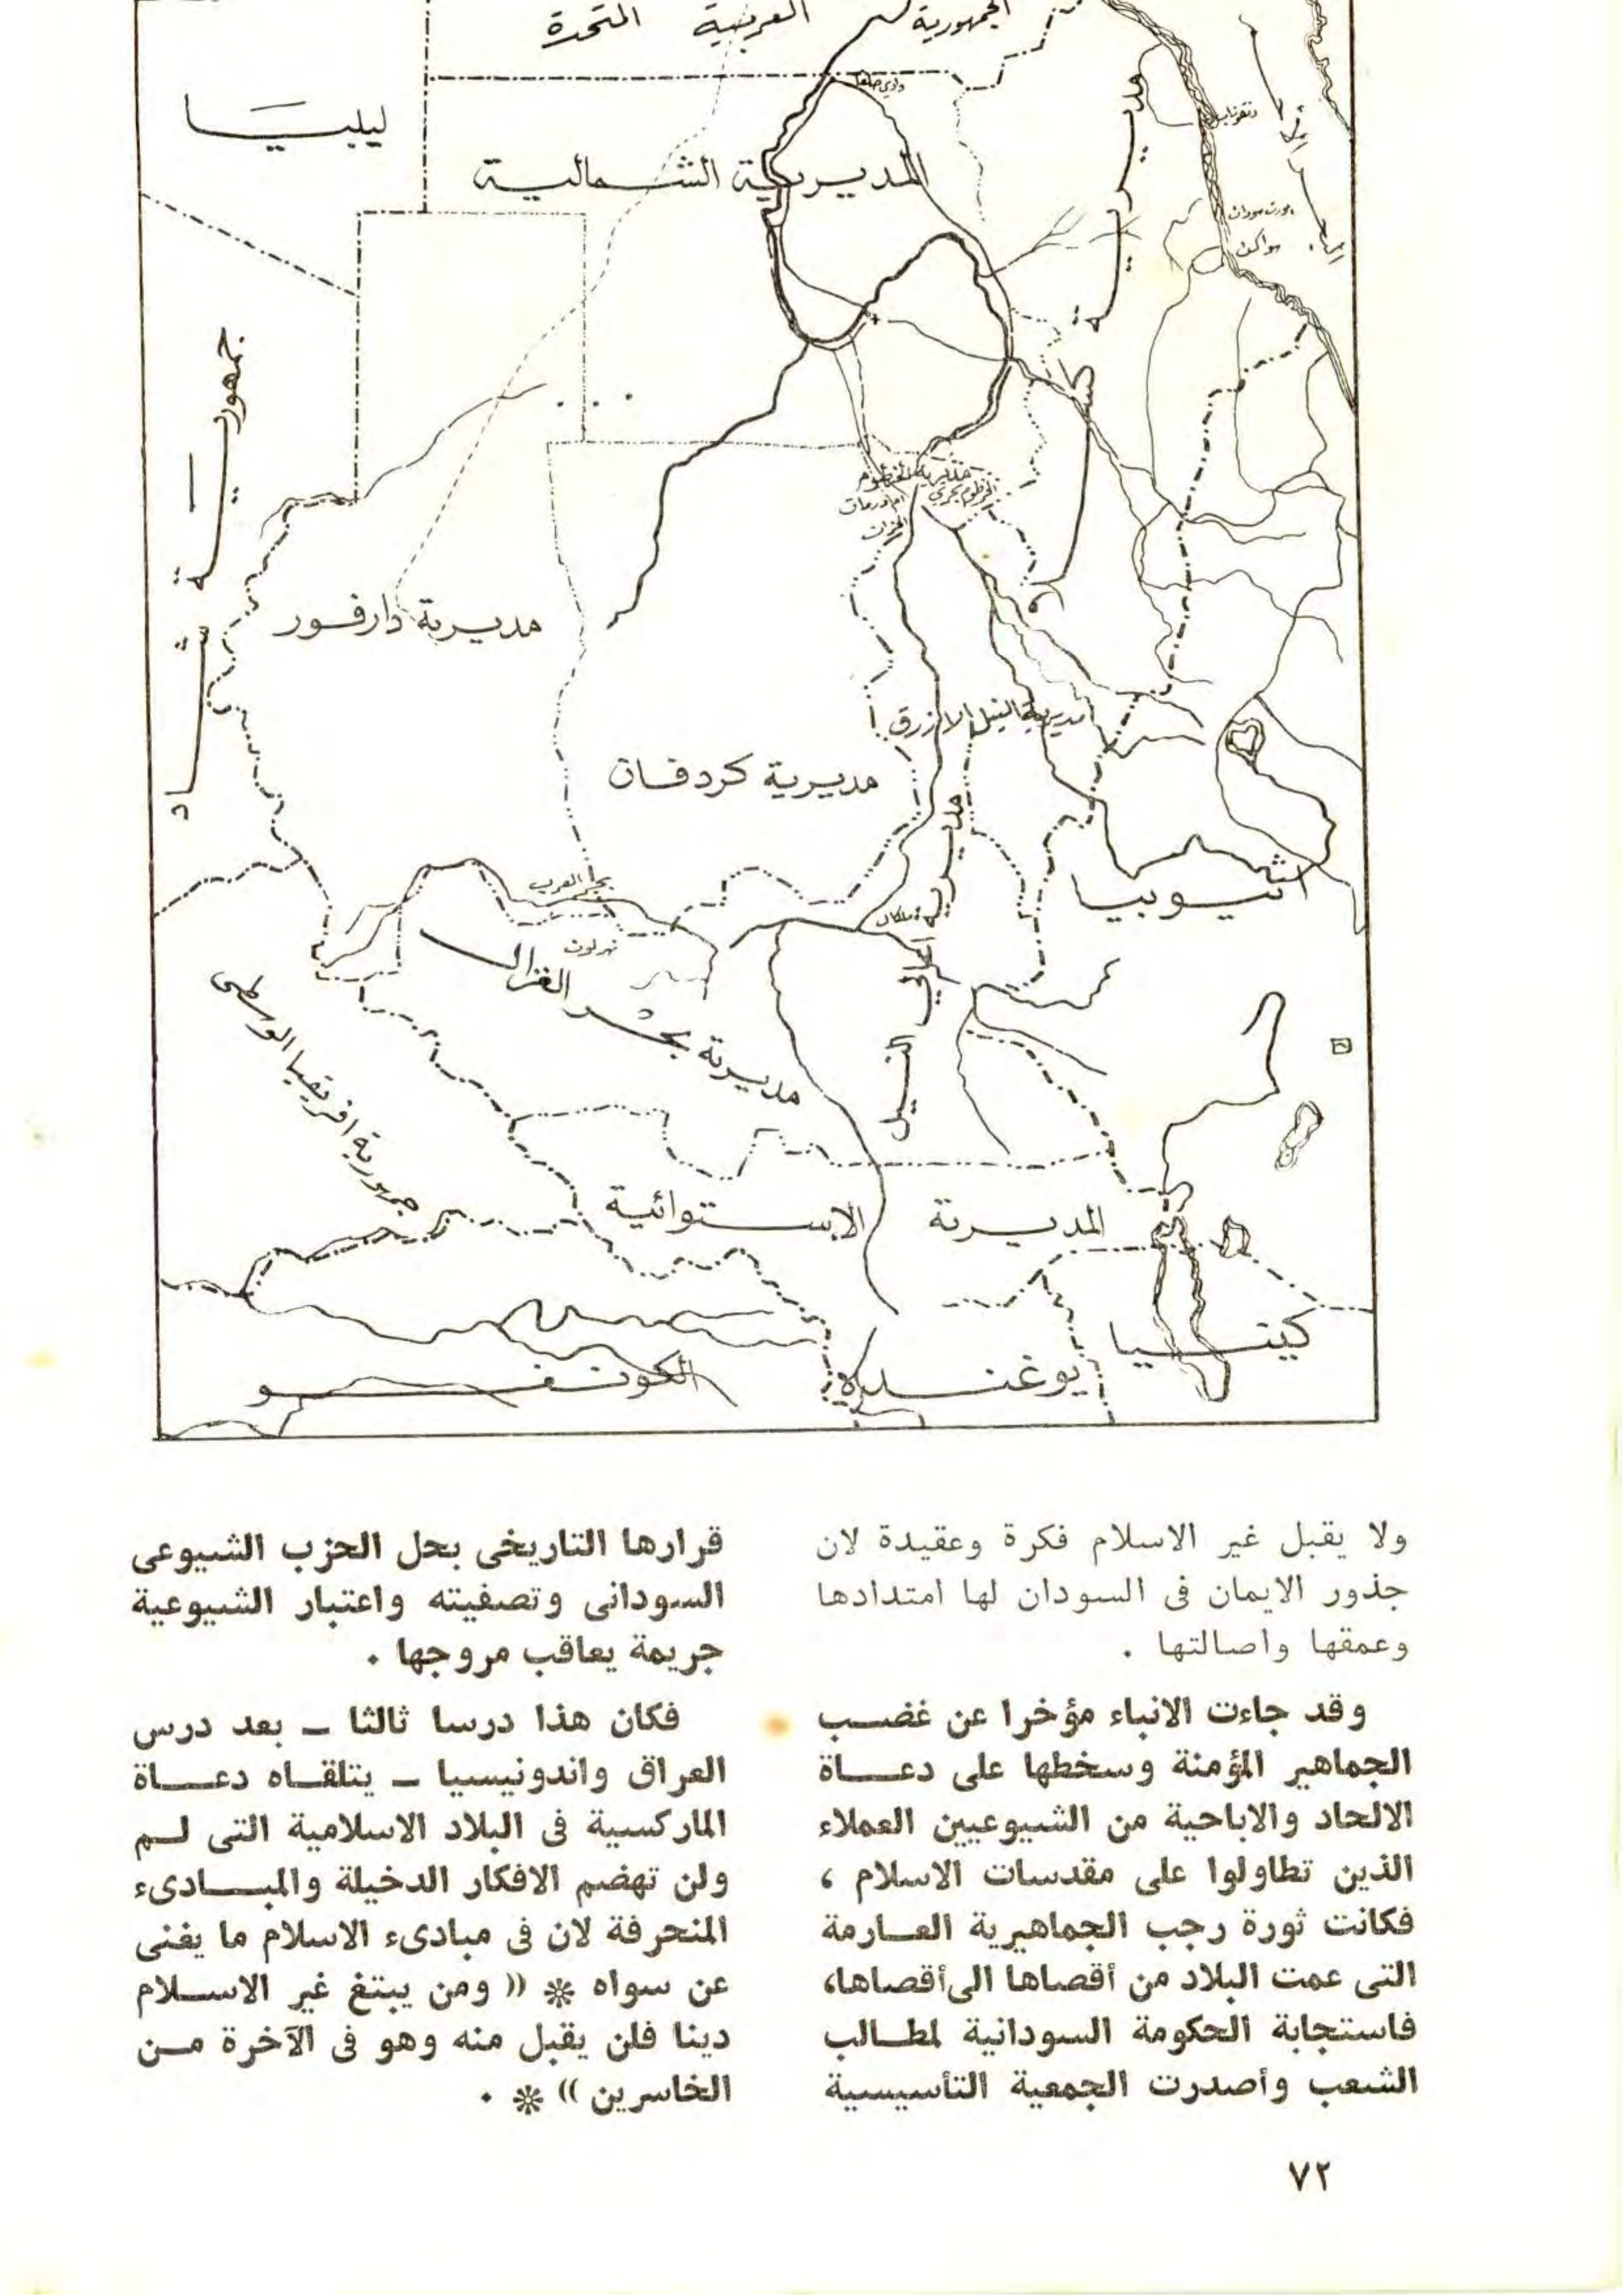 الجمهورية العربية المتحدة
ليبيا
وادي حلفا
المديرية الشمالية
مديرية كسلا
البحر الأحمر
بورت سودان
سواكن
جمهورية شاد
مديرية الخرطوم
الخرطوم بحري
ام درمان
مديرية دارفور
مديرية النيل الازرق
مديرية كردفان
مديرية اعالي النيل
ملكال
اثيوبيا
بحر العرب
نهر لون
مديرية بحر الغزال
جمهورية افريقيا الوسطى
المديرية الاستوائية
كينيا
يوغندا
الكونغو
ولا يقبل غير الاسلام فكرة وعقيدة لان
جذور الايمان فى السودان لها امتدادها
وعمقها واصالتها .
وقد جاءت الانباء مؤخرا عن غضب
الجماهير المؤمنة وسخطها على دعاة
الالحاد والاباحية من الشيوعيين العملاء
الذين تطاولوا على مقدسات الاسلام ،
فكانت ثورة رجب الجماهيرية العارمة
التى عمت البلاد من أقصاها الى أقصاها،
فاستجابة الحكومة السودانية لمطالب
الشعب وأصدرت الجمعية التأسيسية
قرارها التاريخى بحل الحزب الشيوعى
السودانى وتصفيته واعتبار الشيوعية
جريمة يعاقب مروجها .
فكان هذا درسا ثالثا ــ بعد درس
العراق واندونيسيا ــ يتلقاه دعاة
الماركسية فى البلاد الاسلامية التى لم
ولن تهضم الافكار الدخيلة والمبادىء
المنحرفة لان فى مبادىء الاسلام ما يغنى
عن سواه * (( ومن يبتغ غير الاسلام
دينا فلن يقبل منه وهو فى الآخرة من
الخاسرين )) * .
٧٢